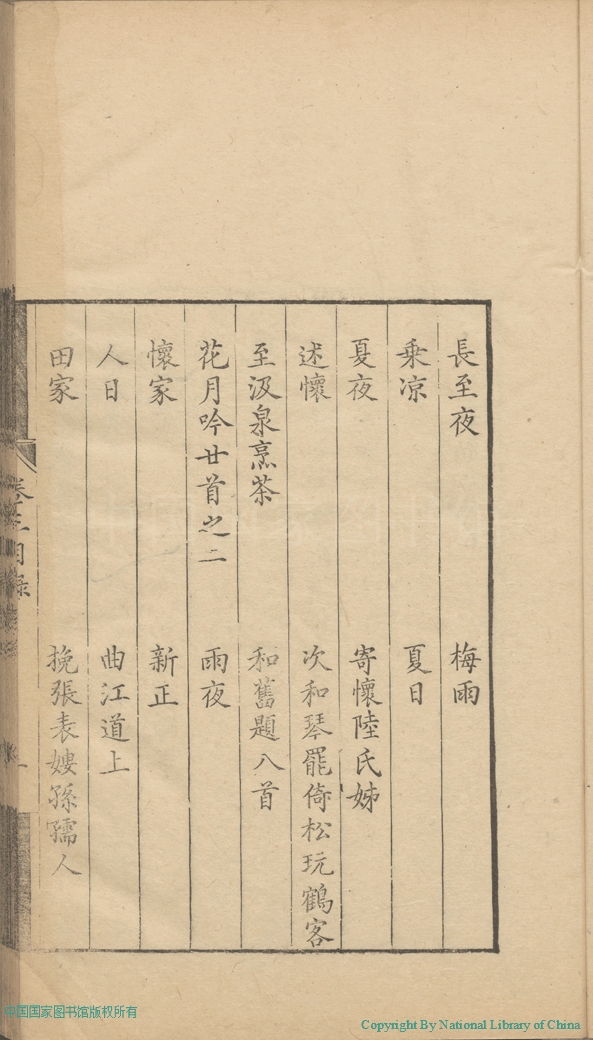 長至夜　梅雨
乗凉　夏日
夏夜　寄懷陸氏姊
述懷　次和琴罷倚松玩鶴客
至汲泉烹茶　和舊題八首
花月吟廿首之二　雨夜
懷家　新正
人日　曲江道上
田家　挽張表嫂孫孺人
目錄
中国国家图书馆版权所有
Copyright By National Library of China